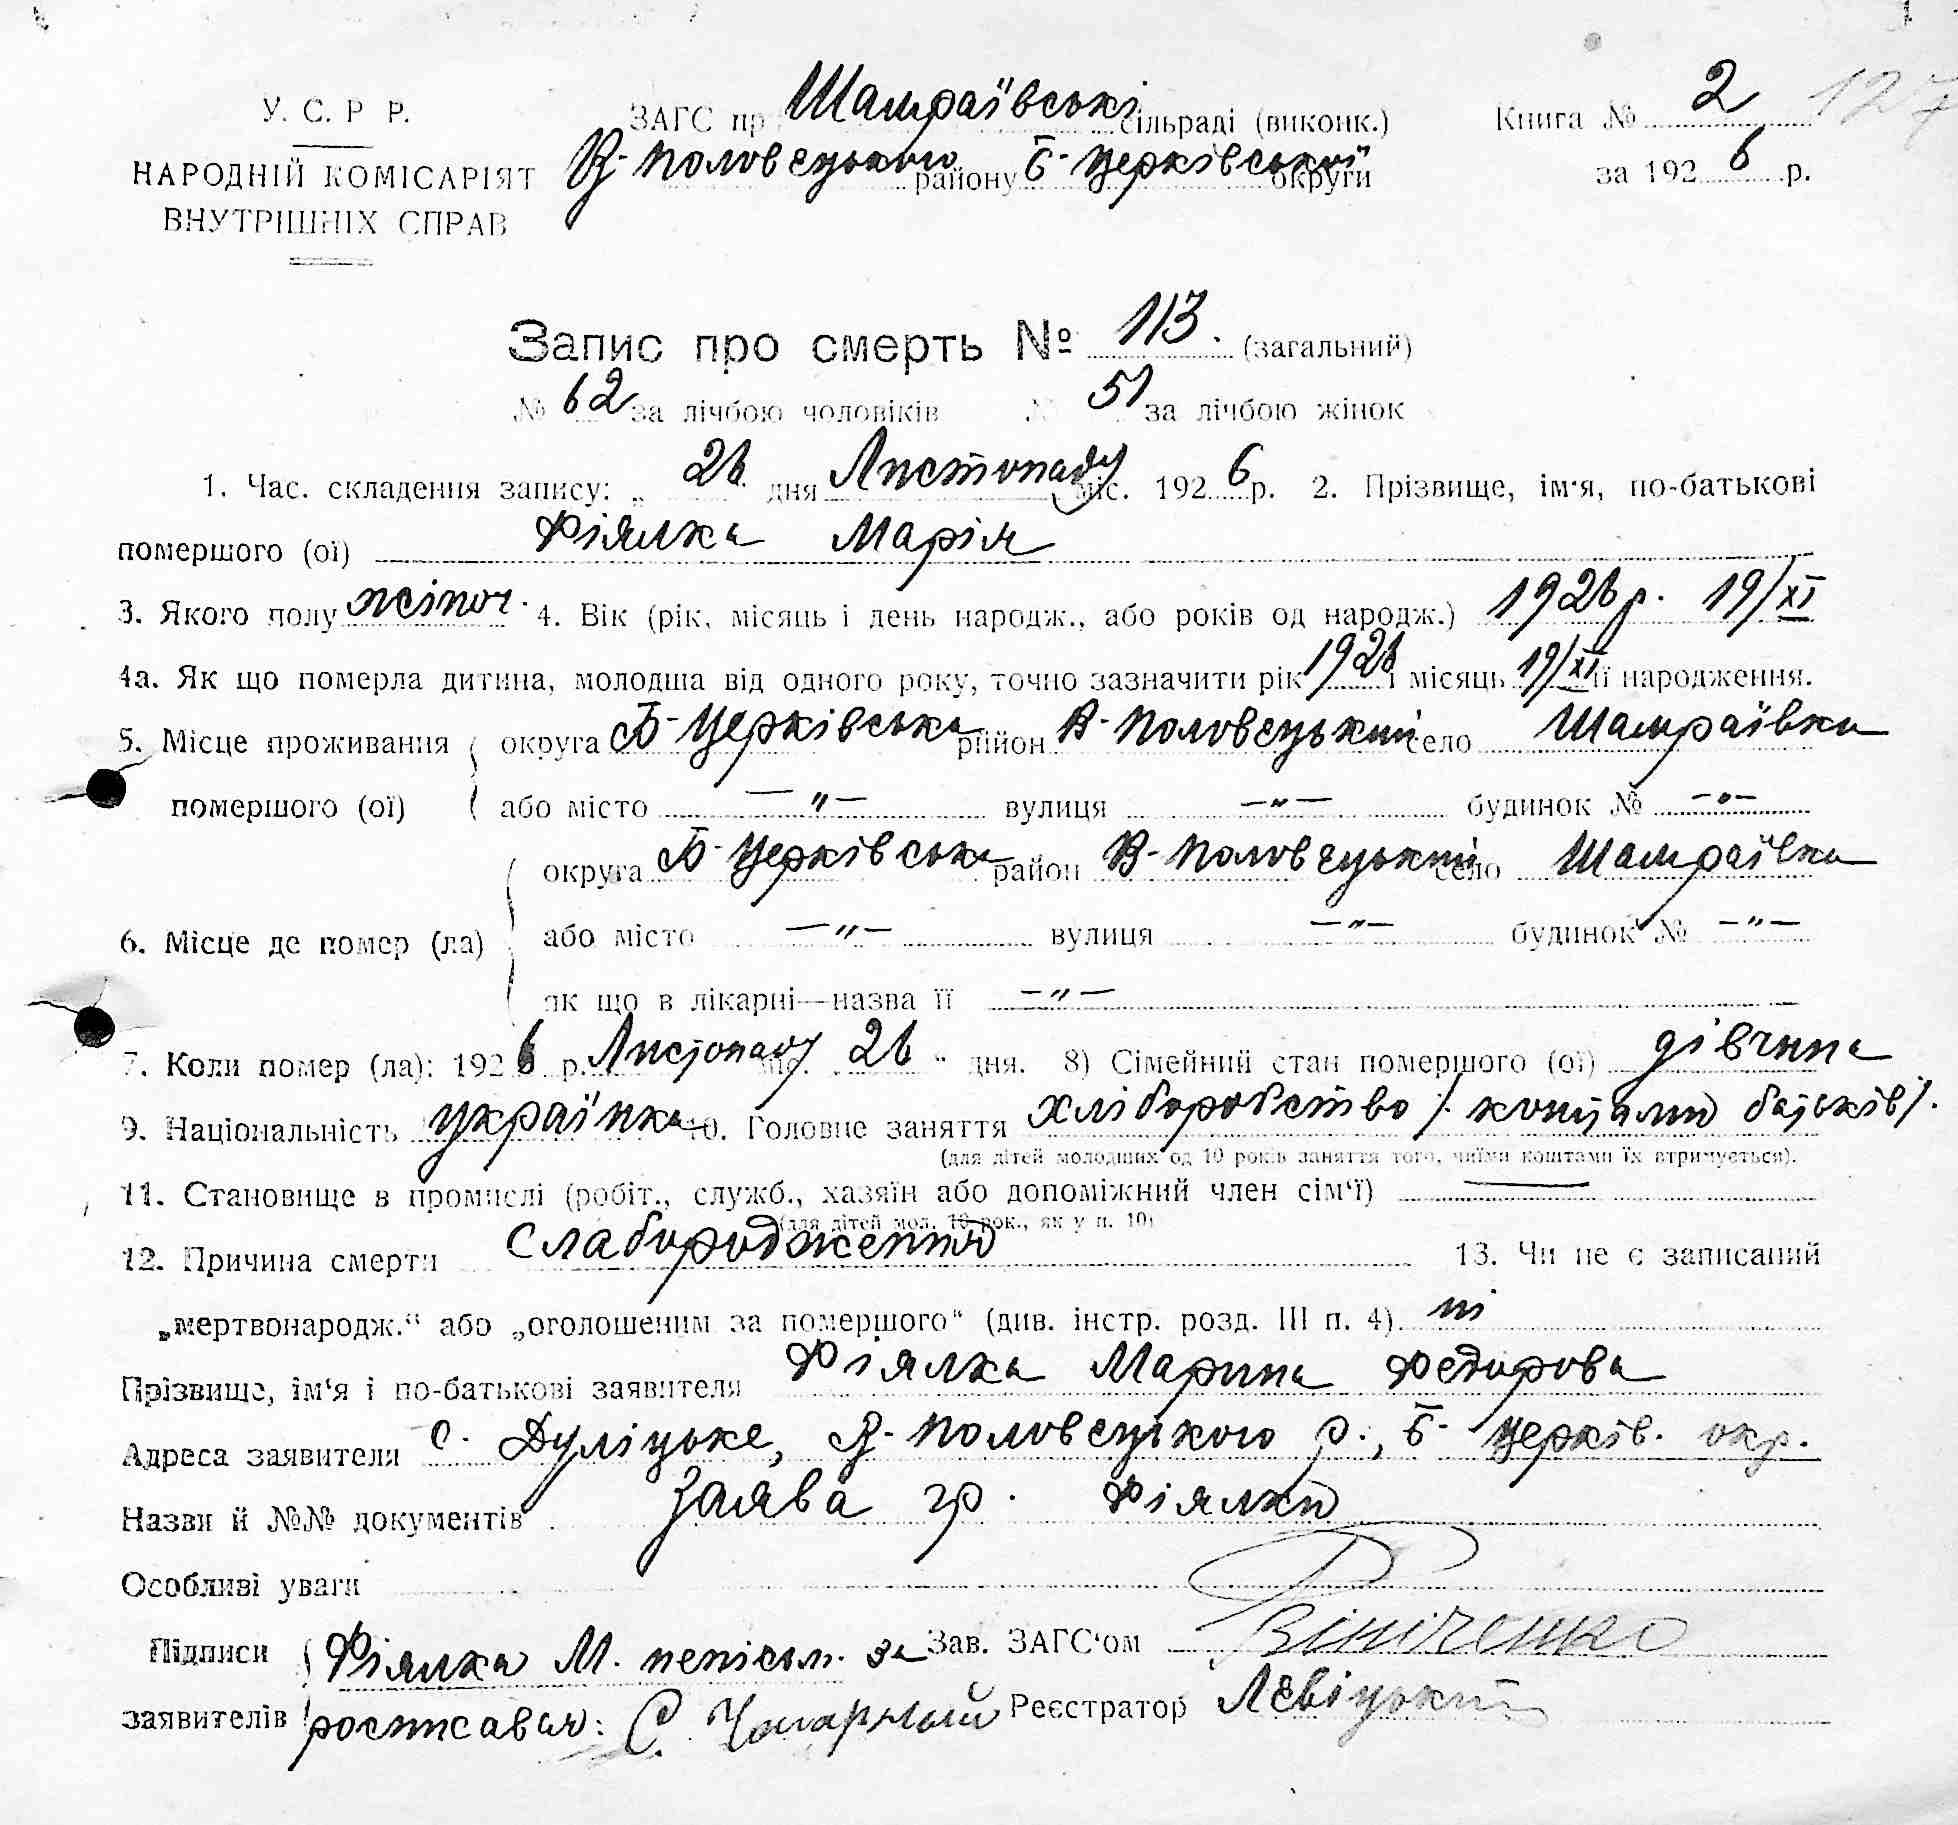 У. С. Р Р.
НАРОДНІЙ КОМІСАРІЯТ
ВНУТРІШНІХ СПРАВ
ЗАГС пр Шамраївські сільраді (виконк.)
В-Половецького району Б-Церківської округи
Книга № 2 127
за 1926 р.
Запис про смерть № 113. (загальний)
№ 62 за лічбою чоловіків № 51 за лічбою жінок
1. Час. складення запису: „ 26 дня Листопаду міс. 1926 р. 2. Прізвище, ім'я, по-батькові
помершого (ої) Фіялка Марія
3. Якого полу жіноч. 4. Вік (рік, місяць і день народж., або років од народж.) 1926 р. 19/XI
4а. Як що померла дитина, молодша від одного року, точно зазначити рік 1926 і місяць 19/XI її народження.
5. Місце проживання округа Б-Церківська район В-Половецький село Шамраївка
помершого (ої) або місто —„— вулиця —„— будинок № —„—
округа Б-Церківська район В-Половецький село Шамраївка
6. Місце де помер (ла) або місто —„— вулиця —„— будинок № —„—
як що в лікарні—назва її —„—
7. Коли помер (ла): 1926 р. Листопаду міс. 26 " дня. 8) Сімейний стан помершого (ої) дівчина
9. Національність українка 10. Головне заняття Хліборобство /. коштами батьків/.
(для дітей молодших од 10 років заняття того, чиїми коштами їх втримується).
11. Становище в промислі (робіт., служб., хазяїн або допоміжний член сім'ї) —
(для дітей мол. 10 рок., як у п. 10)
12. Причина смерти Слабородження 13. Чи не є записаний
„мертвонародж." або „оголошеним за помершого" (див. інстр. розд. III п. 4). ні
Прізвище, ім'я і по-батькові заявителя Фіялка Марина Федорова
Адреса заявителя с. Дуліцьке, В-Половецького р., Б-Церків. окр.
Назви й №№ документів Заява гр. Фіялки
Особливі уваги
Підписи Фіялка М. непісьм. за Зав. ЗАГС'ом Вініченко
заявителів росписався: С. Реєстратор Левіцький